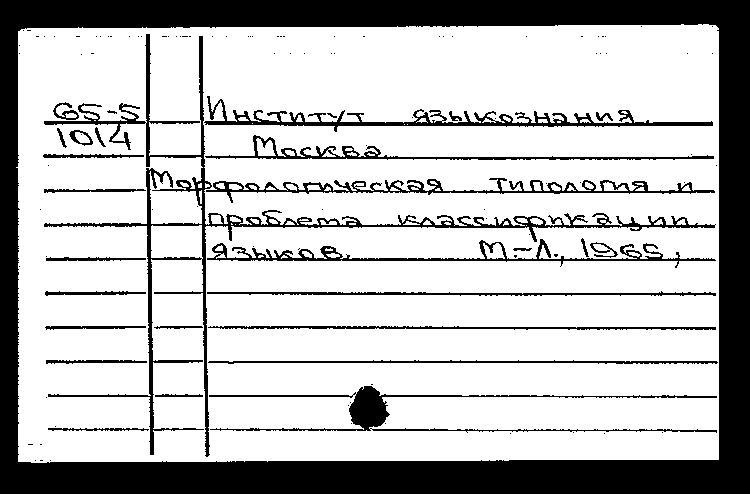 65-5 Институт языкознания.
1014 Москва.
Морфологическая типология и
проблема классификации
языков. М.-Л., 1965,